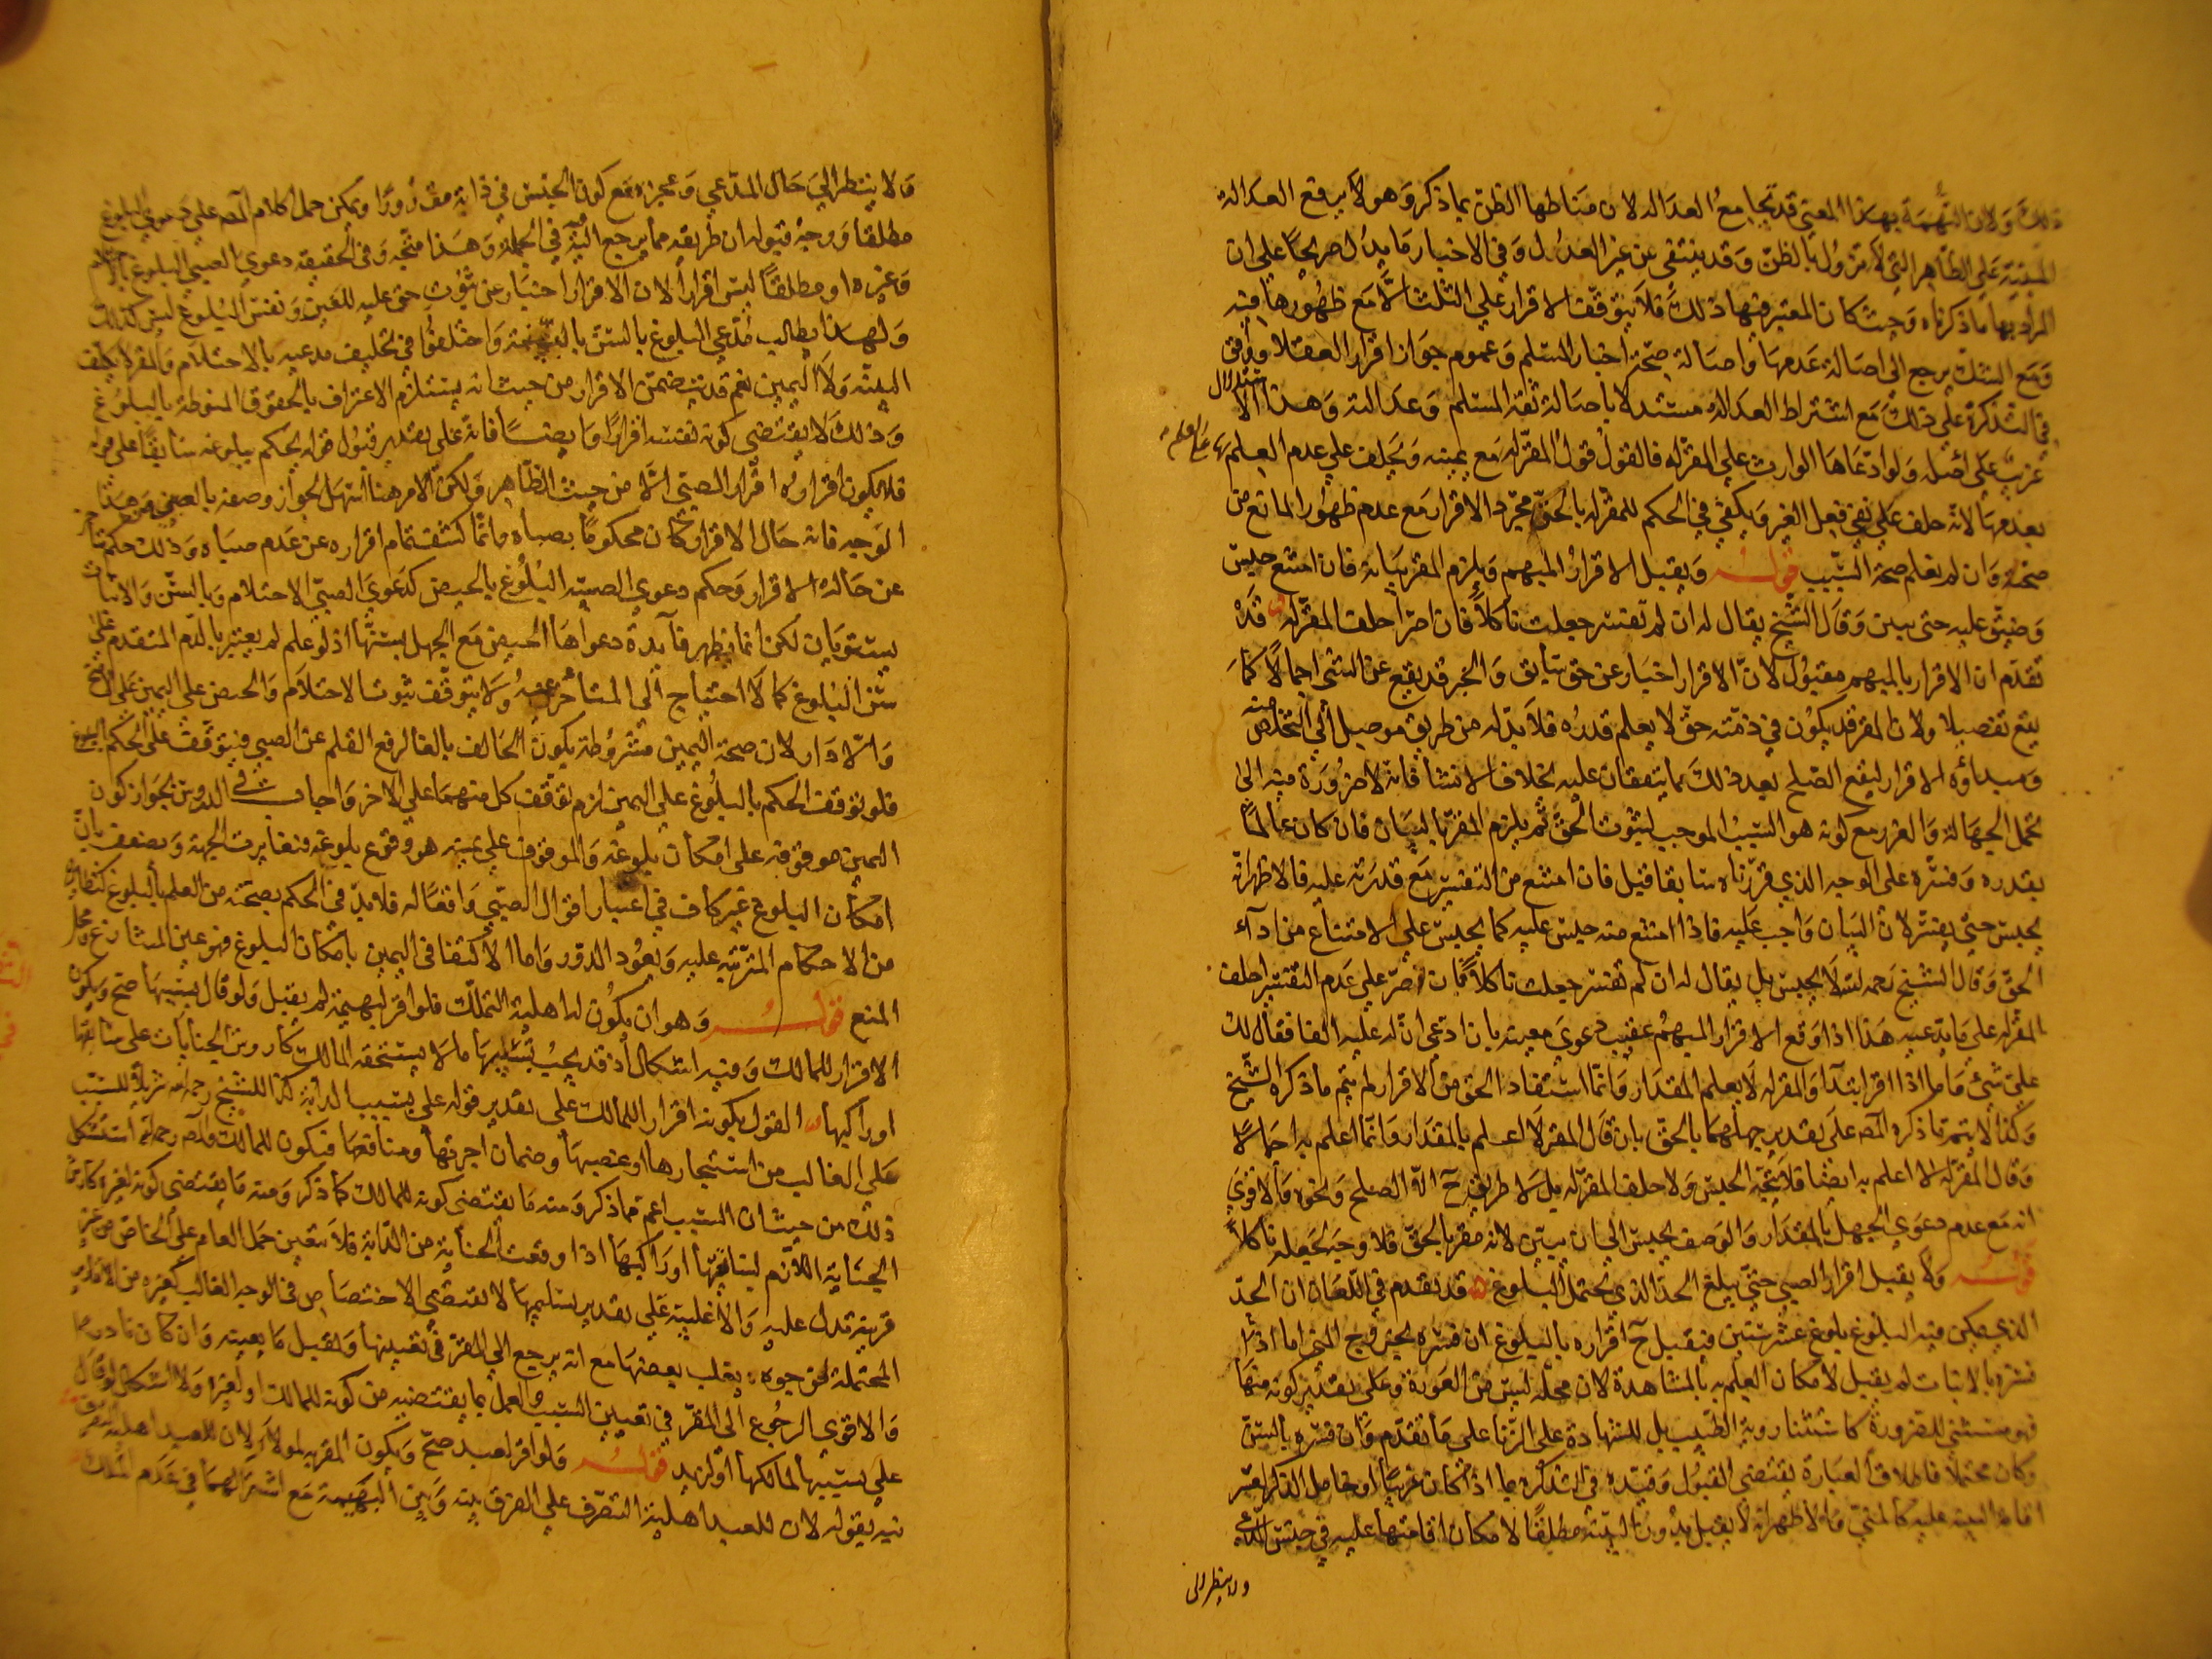 ذلك ولان التهمة بهذا المعنى قد تجامع العدالة لان مناطها الظن بما ذكر وهو لا يرفع العدالة
المبنية على الظاهر التي لا تزول بالظن وقد ينتفى عن غير العدل وفي الاخبار ما يدل صريحا على ان
المراد بها ما ذكرناه وحيث كان المعتبر فيها ذلك فلا يتوقف الاقرار على الثلث الا مع ظهورها فيه
ومع الشك يرجع الى اصالة عدمها واصالة صحة اخبار المسلم وعموم جواز اقرار العقلا ووافق
في التذكرة على ذلك مع اشتراط العدالة مستدلا باصالة ثقة المسلم وعدالته وهذا الاستدلال
غريب على اصله ولو ادعاها الوارث على المقر له فالقول قول المقر له مع يمينه ويحلف على عدم العلم بها
بعدمها لانه حلف على نفي فعل الغير ويكفي في الحكم للمقر له بالحق مجرد الاقرار مع عدم ظهور المانع من
صحته وان لم يعلم صحة السبب قوله ويقبل الاقرار المبهم ويلزم المقر بيانه فان امتنع حبس
وضيق عليه حتى يبين وقال الشيخ يقال له ان لم تفسر جعلت ناكلا فان اصر احلف المقر له قد
تقدم ان الاقرار بالمبهم مقبول لان الاقرار اخبار عن حق سابق والخبر قد يقع عن الشى اجمالا كما
يقع تفصيلا ولان المقر قد يكون في ذمته حق لا يعلم قدره فلا بد له من طريق موصل الى التخلص منه
ومبداؤه الاقرار ليقع الصلح بعد ذلك بما يتفقان عليه بخلاف الانشا فانه لا ضرورة فيه الى
تحمل الجهالة والغرر مع كونه هو السبب الموجب لثبوت الحق ثم يلزم المقر بالبيان فان كان عالما
بقدره وفسره على الوجه الذي قررناه سابقا قبل فان امتنع من التفسير مع قدرته عليه فالاظهر انه
يحبس حتى يفسر لان البيان واجب عليه فاذا امتنع منه حبس عليه كما يحبس على الامتناع من اداء
الحق وقال الشيخ رحمه الله لا يحبس بل يقال له ان لم تفسر جعلت ناكلا فان اصر على عدم التفسير احلف
المقر له على ما يدعيه هذا اذا وقع الاقرار المبهم عقيب دعوى معينه بان ادعى ان له عليه الفا فقال لك
على شيء واما اذا اقر ابتدا والمقر له لا يعلم المقدار وانما استفاد الحق من الاقرار لم يتم ما ذكره الشيخ
وكذا لا يتم ما ذكره المص على تقدير جهلهما بالحق بان قال المقر لا اعلم بالمقدار وانما اعلم به اجمالا
وقال المقر له لا اعلم به ايضا فلا يتجه الحبس ولا حلف المقر له بل لا طريق ح الا الصلح ونحوه والاقوى
انه مع عدم دعوى الجهل بالمقدار والوصف يحبس الى ان يبين لانه مقر بالحق فلا وجه لجعله ناكلا
قوله ولا يقبل اقرار الصبي حتى يبلغ الحد الذي يحتمل البلوغ قد تقدم في اللعان ان الحد
الذي يمكن فيه البلوغ بلوغ عشر سنين فيقبل ح اقراره بالبلوغ ان فسره بخروج المنى اما اذا
فسره بالانبات لم يقبل لامكان العلم به بالمشاهدة لان محله ليس من العورة وعلى تقدير كونه منها
فهو مستثنى للضرورة كاستثناء روية الطبيب بل للشهادة على الزنا على ما تقدم وان فسره بالسن
وكان محتملا فاطلاق العبارة يقتضى القبول وقيده في التذكرة بما اذا كان غريبا او خامل الذكر لعسر
اقامة البينة عليه كالمنى والاظهر انه لا يقبل بدون البينه مطلقا لامكان اقامتها عليه في جنس المدعى
ولا ينظر الى
ولا ينظر الى حال المدعي وعجزه مع كون الجنس في ذاته مقدورا ويمكن حمل كلام المص على دعوى البلوغ
مطلقا ووجه قبوله ان طريقه مما يرجع اليه فيه في الجملة وهذا متجه وفى الحقيقه دعوى الصبي البلوغ بالاحتلام
وغيره او مطلقا ليس اقرارا لان الاقرار اخبار عن ثبوت حق عليه للغير ونفس البلوغ ليس كذلك
ولهذا يطالب مدعي البلوغ بالسن بالبينة واختلفوا في تحليف مدعيه بالاحتلام والمقر لا يكلف
البينه ولا اليمين نعم قد يتضمن الاقرار من حيث انه يستلزم الاعتراف بالحقوق المنوطة بالبلوغ
وذلك لا يقتضى كونه نفسه اقرارا وايضا فانه على تقدير قبول قوله يحكم ببلوغه سابقا على قوله
فلا يكون اقراره اقرار الصبي الا من حيث الظاهر ولكن الامر هنا اسهل لجواز وصفه بالصبي من هذا
الوجه فانه حال الاقرار كان محكوما بصباه وانما كشف تمام اقراره عن عدم صباه وذلك حكم متاخر
عن حالة الاقرار وحكم دعوى الصبية البلوغ بالحيض كدعوى الصبي الاحتلام وبالسن والانبات
يستويان لكن انما يظهر فآيدة دعواها الحيض مع الجهل بسنها اذ لو علم لم يعتبر بالدم المتقدم على
سن البلوغ كما لا احتياج الى المتاخر عنه ولا يتوقف ثبوت الاحتلام والحيض على اليمين على الاصح
والا دار لان صحة اليمين مشروطة بكون الحالف بالغا لرفع القلم عن الصبي فيتوقف على الحكم بالبلوغ
فلو توقف الحكم بالبلوغ على اليمين لزم توقف كل منهما على الاخر واجاب في الدروس بجواز كون
اليمين موقوفة على امكان بلوغه والموقوف على يمينه هو وقوع بلوغه فتغايرت الجهة ويضعف بان
امكان البلوغ غير كاف في اعتبار اقوال الصبي وافعاله فلا بد في الحكم بصحته من العلم بالبلوغ كنظايره
من الاحكام المترتبه عليه ويعود الدور واما الاكتفا في اليمين بامكان البلوغ فهو عين المتنازع ومحل
المنع قوله وهو ان يكون له اهلية التملك فلو اقر لبهيمة لم يقبل ولو قال بسببها صح ويكون
الاقرار للمالك وفيه اشكال اذ قد يجب بسببها ما لا يستحقه المالك كاروش الجنايات على سائقها
او راكبها القول بكونه اقرارا للمالك على تقدير قوله على بسبب الدابة كذا للشيخ رحمه الله تنزيلا للسبب
على الغالب من استيجارها او غصبها وضمان اجرتها ومنافعها فيكون للمالك والمص رحمه الله استشكل
ذلك من حيث ان السبب اعم مما ذكر ومنه ما يقتضى كونه للمالك كما ذكر ومنه ما يقتضى كونه لغيره كارش
الجناية اللازم لسائقها او راكبها اذا وقعت الجناية من الدابة فلا يتعين حمل العام على الخاص من غير
قرينة تدل عليه والاغلبية على تقدير تسليمها لا تقتضى الاختصاص في الوجه الغالب كغيره من الاقارير
المحتملة لوجوه يغلب بعضها مع انه يرجع الى المقر في تعيينها ويقبل ما يعينه وان كان نادرا
والاقوى الرجوع الى المقر في تعيين السبب والعمل بما يقتضيه من كونه للمالك او لغيره ولا اشكال لو قال
على بسببها لمالكها او لزيد قوله ولو اقر لعبد صح ويكون المقر به لمولاه لان للعبد اهلية التصرف
نبه بقوله لان للعبد اهلية التصرف على الفرق بينه وبين البهيمة مع اشتراكهما في عدم الملك